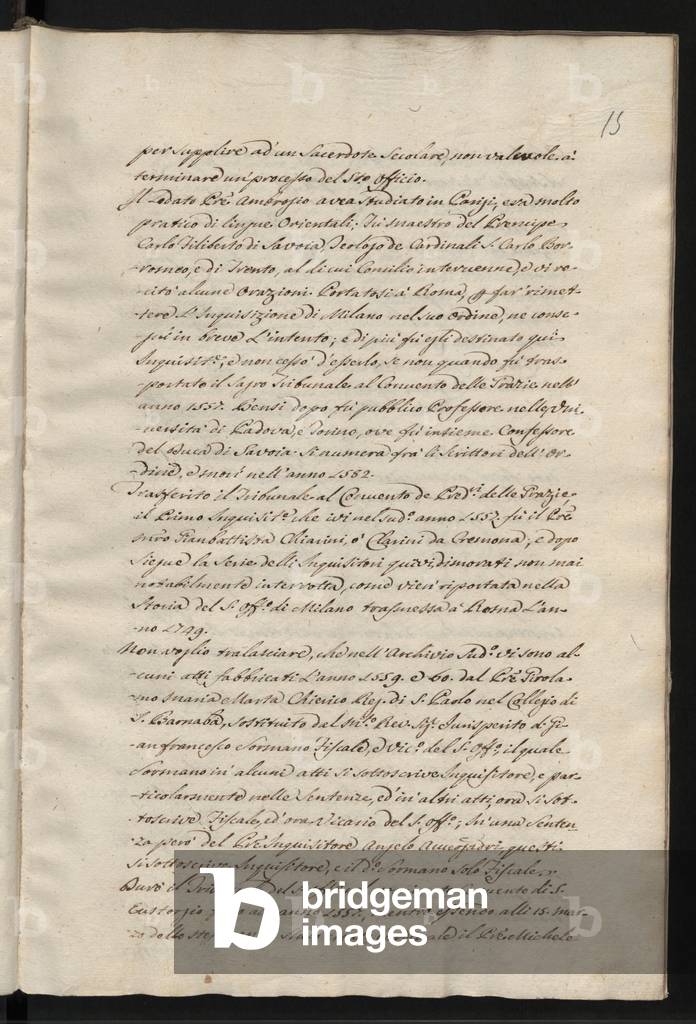 15
per supplire ad un Sacerdote Secolare, non valevole à
terminare un processo del Sto Officio.
Il Lodato Pre Ambrosio avea studiato in Parigi, era molto
pratico di lingue Orientali; Fù maestro del Prencipe
Carlo Filiberto di Savoia, Teologo de Cardinali S. Carlo Bor-
-romeo, e di Trento, al di cui Concilio intervenne, e vi re-
-citò alcune Orazioni. Portatosi à Roma, p far rimet-
-tere L'Inquisizione di Milano nel suo Ordine, ne conse-
-guì in breve L'intento; e di più fù egli destinato quì
Inquisitre; e non cessò d'esserlo, se non quando fù tras-
-portato il Sagro Tribunale al Convento delle Grazie nell'
anno 1557. Bensì dopo fù pubblico Professore nelle Uni-
-versità di Padova, e Torino, ove fù insieme Confessore
del Duca di Savoia. Si numera frà li Scrittori dell'Or-
-dine, e morì nell'anno 1582.
Trasferito il Tribunale al Convento de Predri delle Grazie,
il Primo Inquisitre che ivi nel sudo anno 1557. fù il Pre
Mro Gianbattista Chiarini, ò Clarici da Cremona; e dopo
siegue la serie delli Inquisitori quivi dimorati non mai
notabilmente interrotta, come vien riportata nella
Storia del S. Offo di Milano trasmessa à Roma L'an-
-no 1749.
Non voglio tralasciare, che nell'Archivio sudo vi sono al-
-cuni atti fabbricati L'anno 1559. e 60. dal Pre Girola-
-mo Maria Marta Chierico Reg. di S. Paolo nel Collegio di
S. Barnaba, sostituito dal Mo Rev. Sigr Jurisperito d. Gi-
-anfrancesco Sormano Fiscale, e Vico del S. Offo il quale
Sormano in alcuni atti si sottoscrive Inquisitore, e par-
-ticolarmente nelle Sentenze, ed in altri atti, ora si sot-
-toscrive Fiscale, ed ora Vicario del S. Offo; In una Senten-
za però del Pre Inquisitore Angelo questi
si sottoscrive Inquisitore, e il do Sormano solo Fiscale.
Durò il Tri del S. Convento di S.
Eustorgio anno 1557. mentre essendo alli 15. mar-
zo dello stes il Pre Michele
bridgeman
images